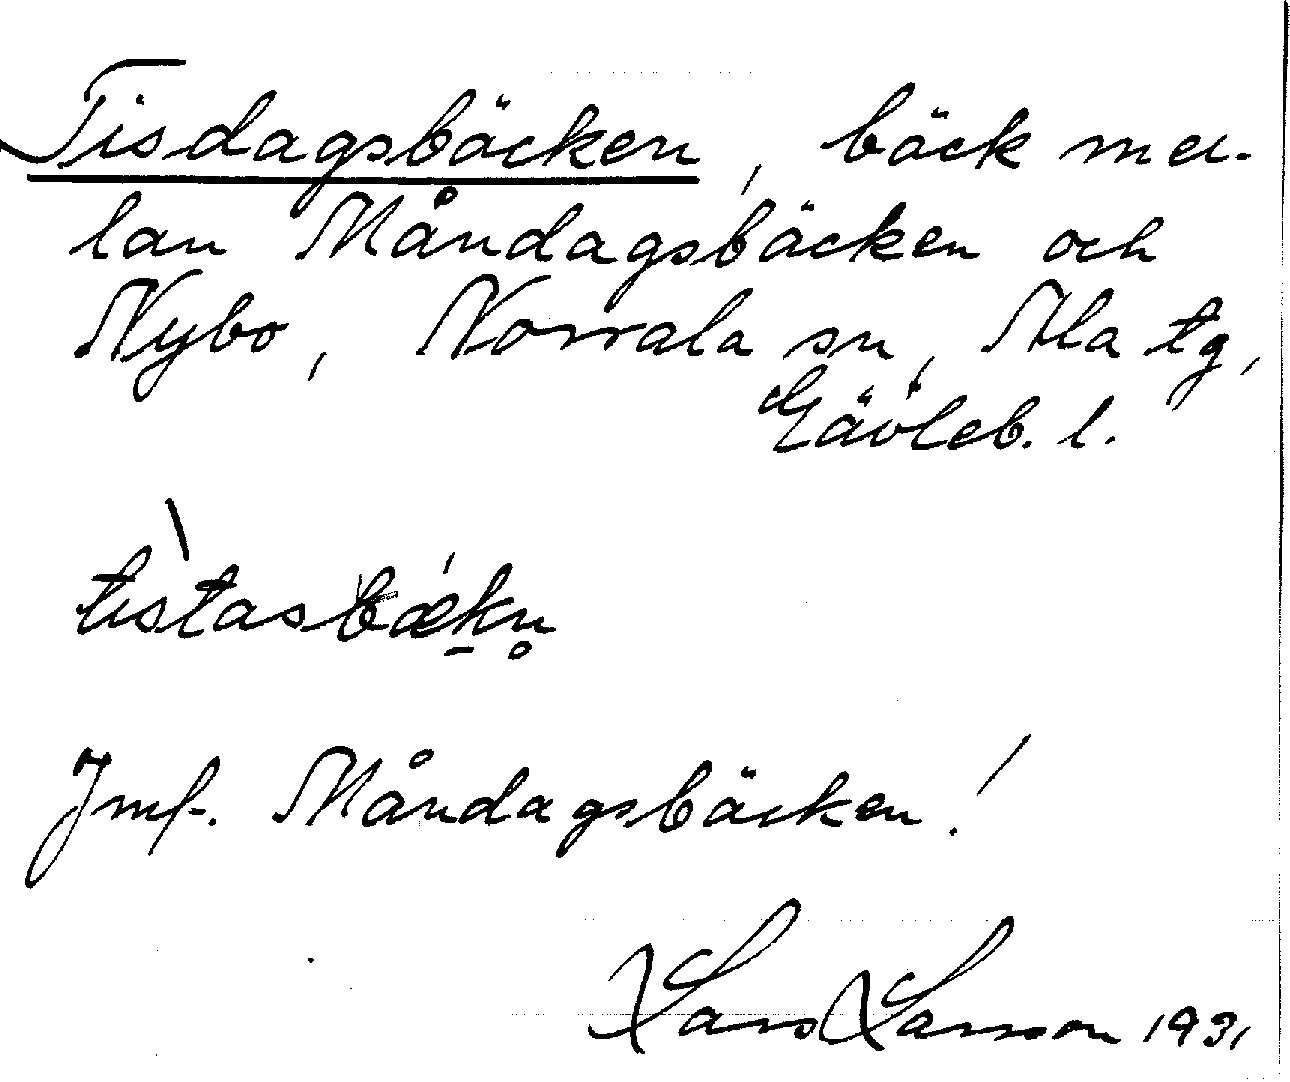 Tisdagsbäcken, bäck mel-
lan Måndagsbäcken och
Nybo, Norrala sn, Ala tg,
Gävleb. l.
tìstasbǽk̠n̥
Jmf. Måndagsbäcken!
Lars Larsson 1931